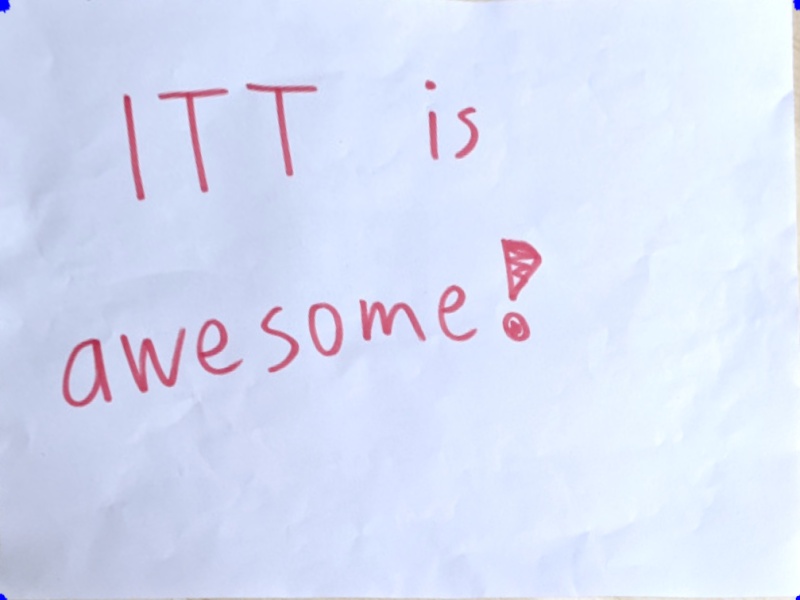 ITT is
awesome!